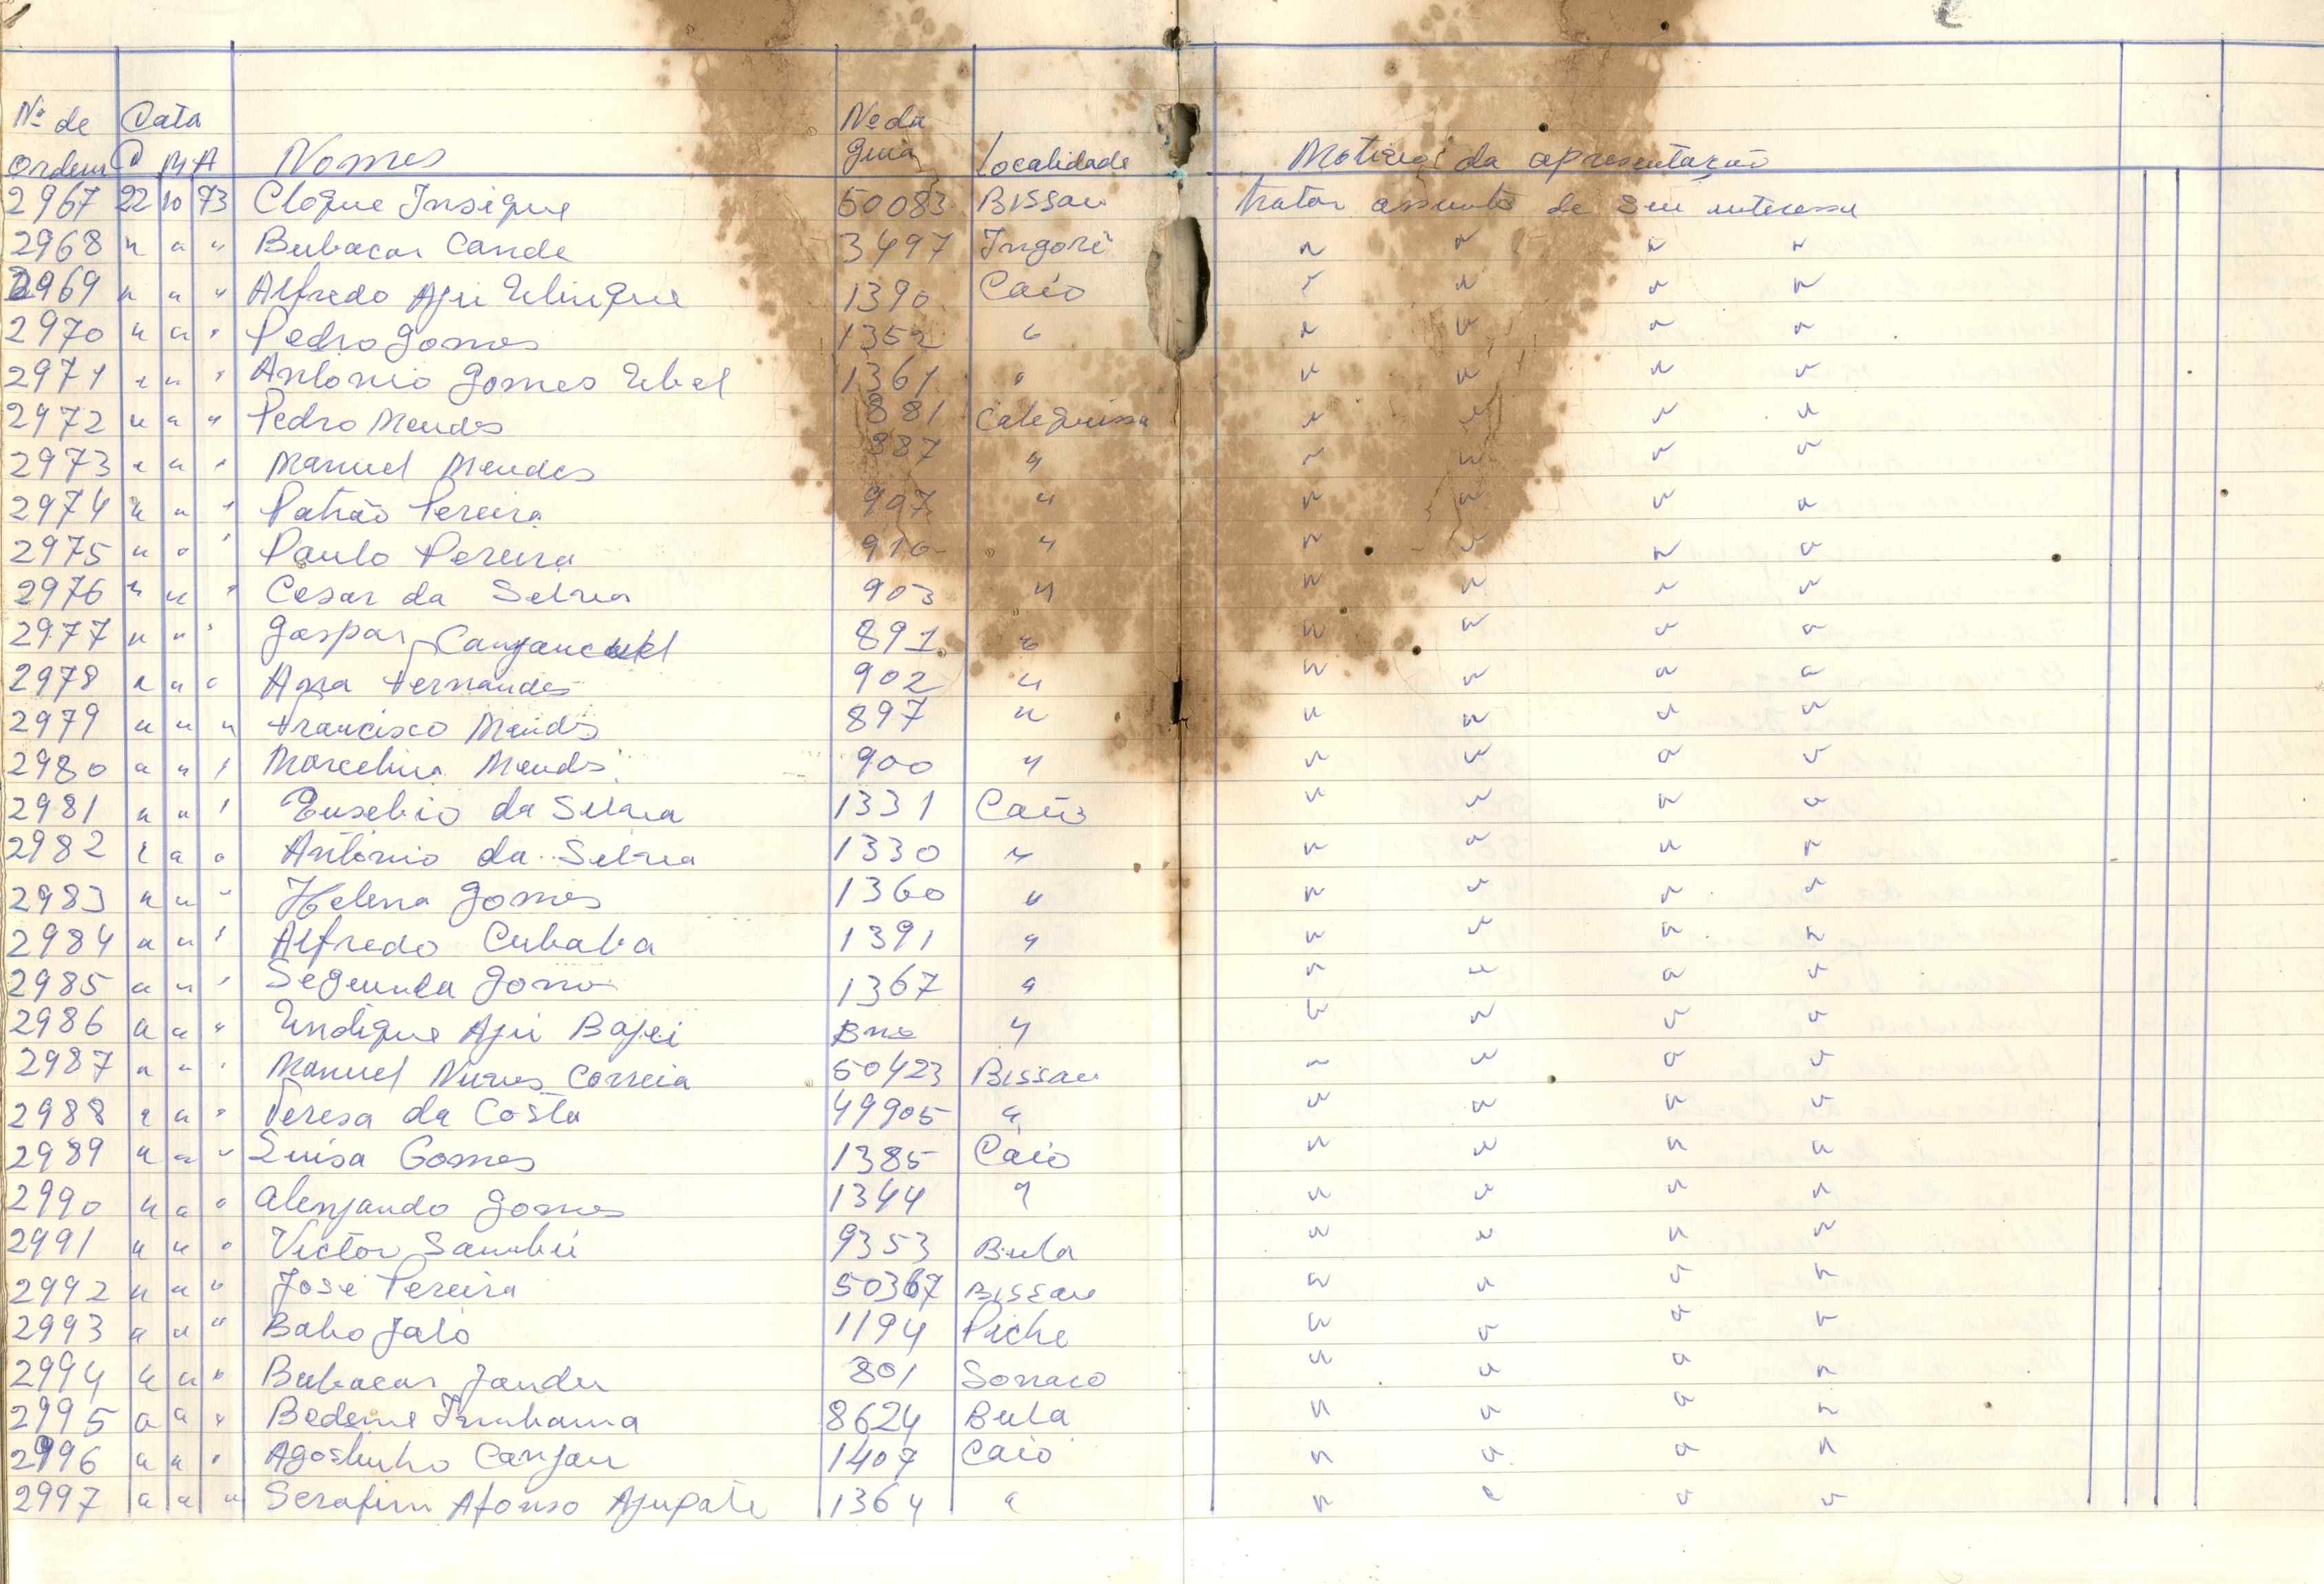 Nº de Data Nº da
ordem D M A Nomes guia Localidade Motivo da apresentação
2967 22 10 73 Cloque Insique 50083 Bissau tratar assunto de seu interesse
2968 " " " Bubacar Cande 3497 Ingoré " " " "
2969 " " " Alfredo Aju 1390 Caió " " " "
2970 " " " Pedro Gomes 1352 " " " " "
2971 " " " António Gomes 1361 " " " " "
2972 " " " Pedro Mendes 881 Calequisse " " " "
2973 " " " Manuel Mendes 887 " " " " "
2974 " " " Patrão Pereira 907 " " " " "
2975 " " " Paulo Pereira 910 " " " " "
2976 " " " Cesar da Selva 903 " " " " "
2977 " " " Gaspar 891 " " " " "
2978 " " " Ana Fernandes 902 " " " " "
2979 " " " Francisco Mendes 897 " " " " "
2980 " " " Marcelina Mends 900 " " " " "
2981 " " " Eusebio da Selva 1331 Caió " " " "
2982 " " " António da Selva 1330 " " " " "
2983 " " " Helena Gomes 1360 " " " " "
2984 " " " Alfredo Cubaba 1391 " " " " "
2985 " " " Segunda Gomes 1367 " " " " "
2986 " " " Undique Aju Bajei " " " " "
2987 " " " Manuel Nunes Correia 50423 Bissau " " " "
2988 " " " Teresa da Costa 49905 " " " " "
2989 " " " Luisa Gomes 1385 Caió " " " "
2990 " " " Alexjando Gomes 1344 " " " " "
2991 " " " Victor Sambú 9353 Bula " " " "
2992 " " " José Pereira 50367 Bissau " " " "
2993 " " " Babo Jaló 1194 Piche " " " "
2994 " " " Bubacar Jandu 801 Sonaco " " " "
2995 " " " Bedeme Inubama 8624 Bula " " " "
2996 " " " Agostinho Canjau 1407 Caió " " " "
2997 " " " Serafim Afonso Ajupate 1364 " " " " "